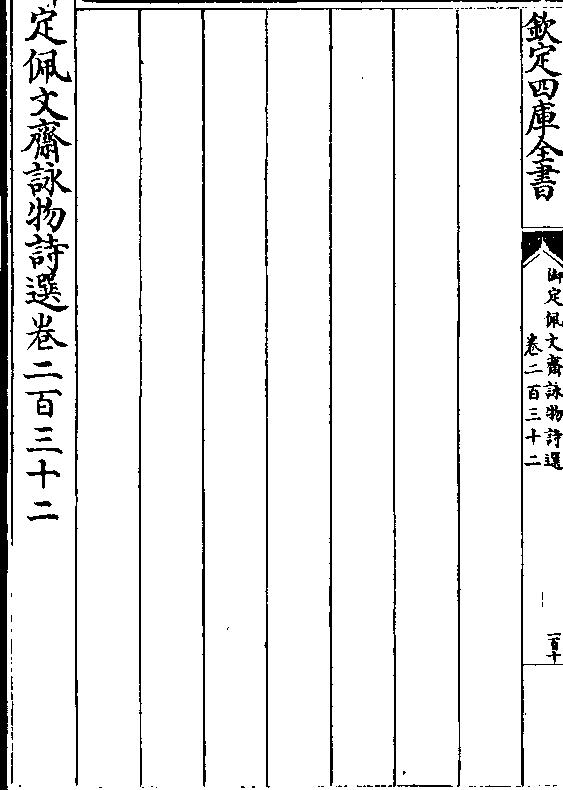 欽定四庫全書
御定佩文齋詠物詩選
卷二百三十二
一百十
定佩文齋詠物詩選卷二百三十二